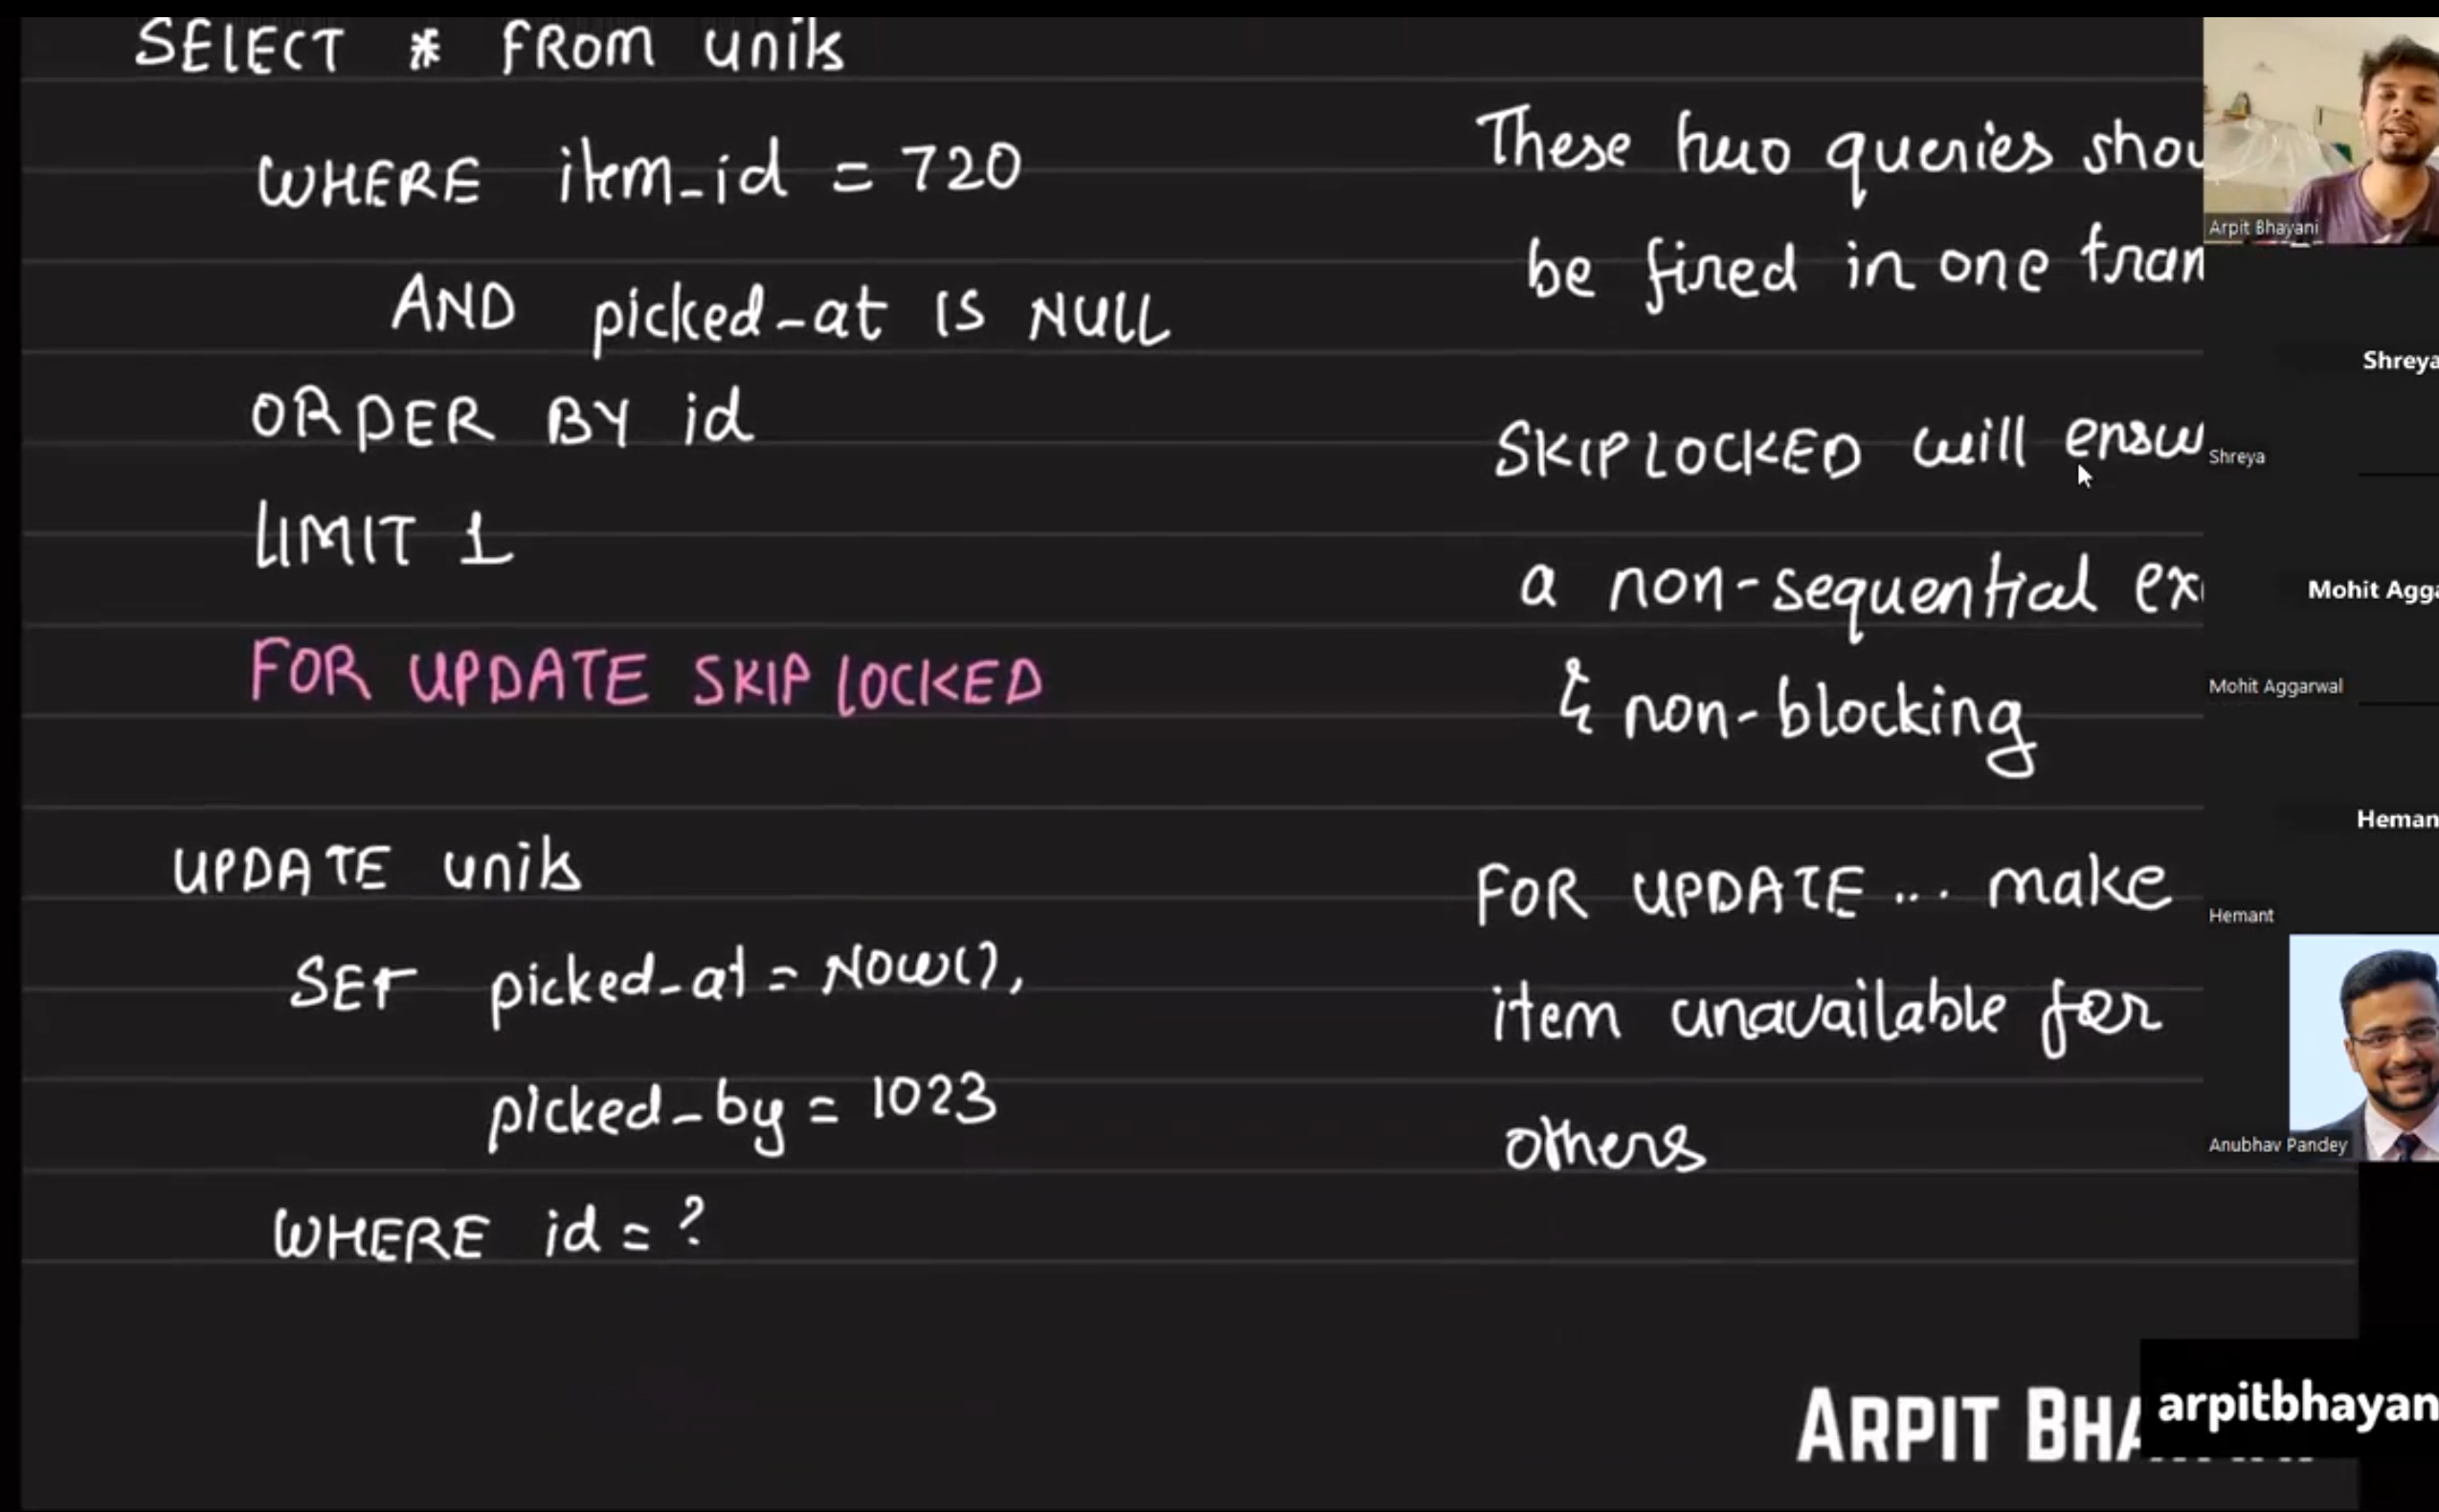 SELECT * FROM units
WHERE item_id = 720
AND picked_at IS NULL
ORDER BY id
LIMIT 1
FOR UPDATE SKIP LOCKED
UPDATE units
SET picked_at = NOW(),
picked_by = 1023
WHERE id = ?
These two queries shou
be fired in one tran
SKIP LOCKED will ensu
a non-sequential ex
& non-blocking
FOR UPDATE ... make
item unavailable for
others
Arpit Bhayani
Shreya
Shreya
Mohit Agga
Mohit Aggarwal
Heman
Hemant
Anubhav Pandey
ARPIT BHA
arpitbhayan